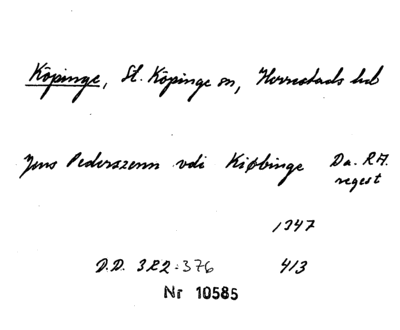 Köpinge, St. Köpinge sn, Herrestads hd
Jens Pederszenn vdi Kiøbinge Da. RA.
regest
1347
D.D. 3R2:376 413
Nr 10585